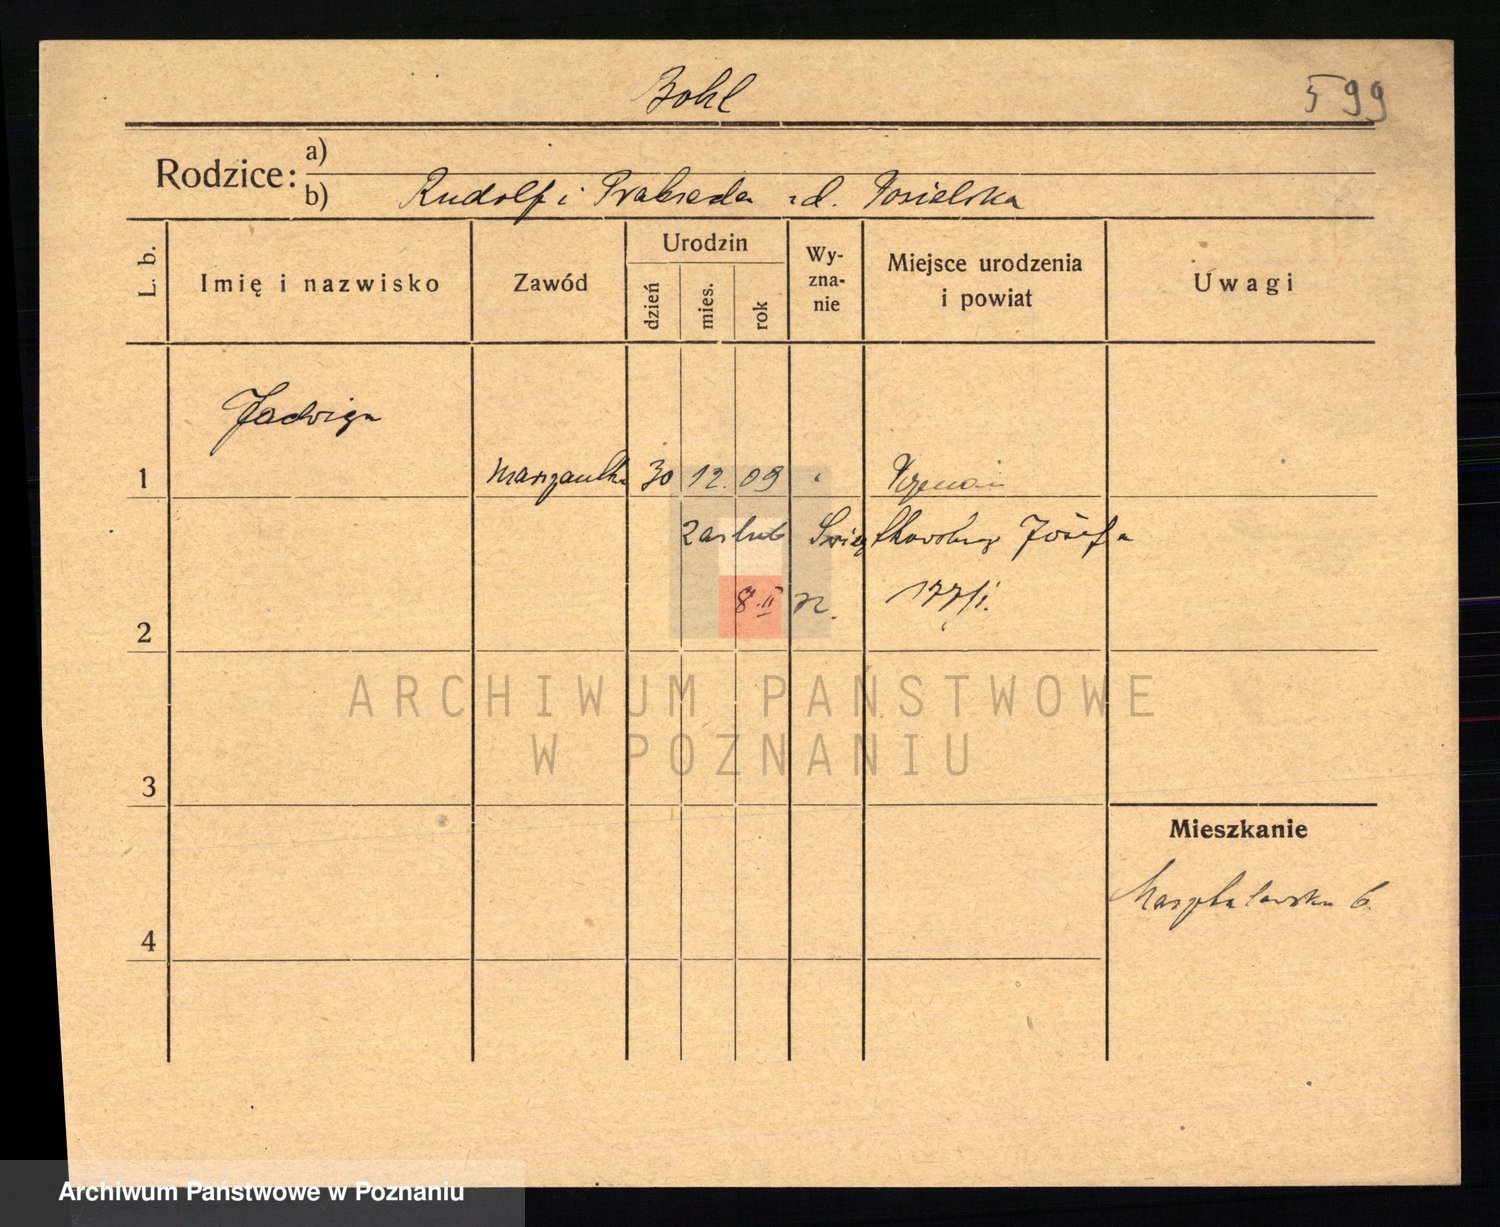 Bohl
599
Rodzice: a)
b) Rudolf i Prakseda zd. Kosielska
L. b. Imię i nazwisko Zawód Urodzin dzień mies. rok Wyznanie Miejsce urodzenia i powiat Uwagi
Jadwiga
1 30 12. 09
zaślub Józefa
8. II 177/1.
2
ARCHIWUM PAŃSTWOWE
W POZNANIU
3
Mieszkanie
6.
4
Archiwum Państwowe w Poznaniu